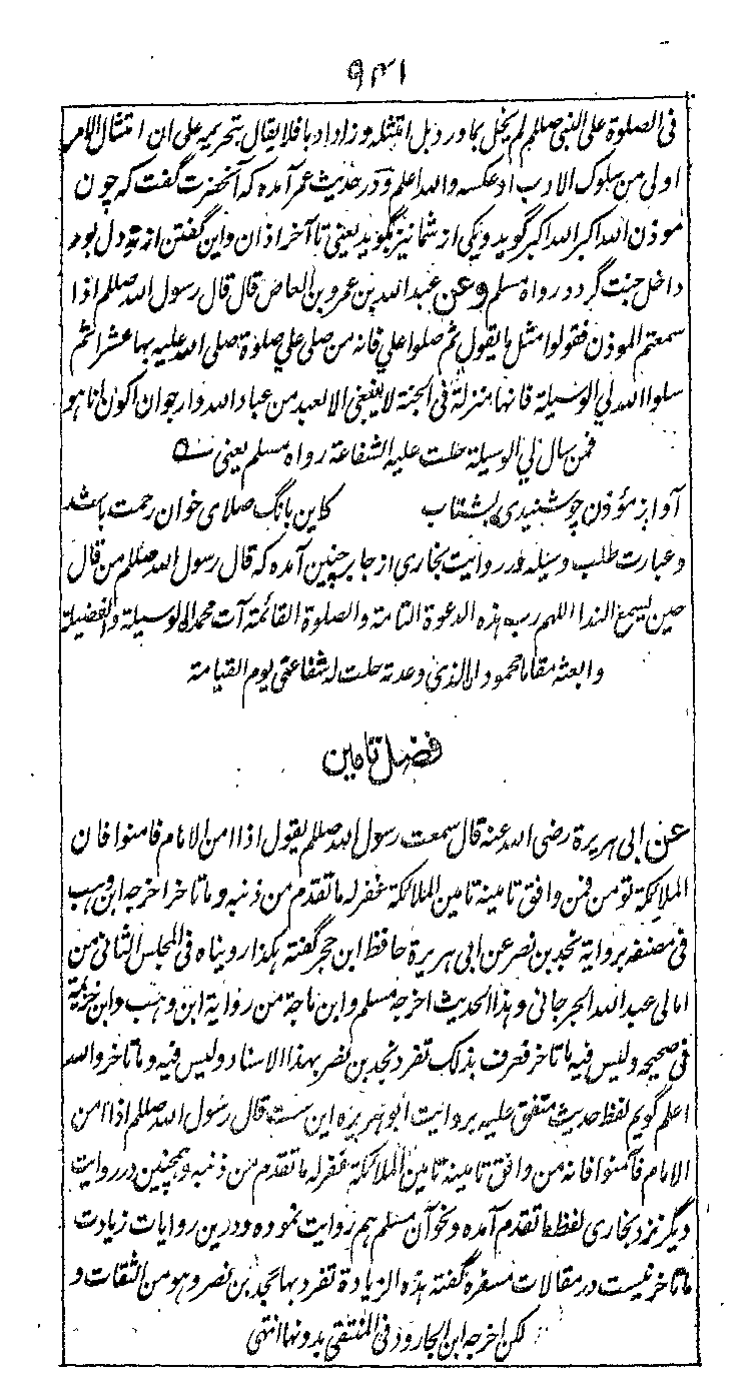 ۹۳۱
فی الصلوة علی النبی صللم لم یخل بما ورد بل امتثله و زاد ادبا فلا یقال بتحریمه علی ان امتثال الامر
اولی من سلوک الادب او عکسه والله اعلم و در حدیث عمر آمده که آنحضرت گفت که چون
موذن الله اکبر الله اکبر گوید و یکی از شما نیز بگوید یعنی تا آخر اذان و این گفتن از ته دل بود
داخل جنت گردد رواه مسلم وعن عبدالله بن عمرو بن العاص قال قال رسول الله صللم اذا
سمعتم الموذن فقولوا مثل ما یقول ثم صلوا علي فانه من صلی علي صلوة صلی الله علیه بها عشرا ثم
سلوا الله لي الوسیلة فانها منزلة فی الجنة لا ینبغی الا لعبد من عباد الله وارجوان اکون انا هو
فمن سال لي الوسیلة حلت علیه الشفاعة رواه مسلم یعنی
آواز مؤذن چو شنیدی بشتاب کاین بانگ صلای خوان رحمت باشد
و عبارت طلب وسیله در روایت بخاری از جابر چنین آمده که قال رسول الله صللم من قال
حین یسمع الندا اللهم رب هذه الدعوة التامة والصلوة القائمة آت محمدا الوسیلة والفضیلة
وابعثه مقاما محمودا الذی وعدته حلت له شفاعتی یوم القیامة
فضل تامین
عن ابی هریرة رضی الله عنه قال سمعت رسول الله صللم یقول اذا امن الامام فامنوا فان
الملائکة تومن فمن وافق تامینه تامین الملائکة غفر له ما تقدم من ذنبه و ما تاخر اخرجه ابن وهب
فی مصنفه بروایة بحر بن نصر عن ابی هریرة حافظ ابن حجر گفته هکذا رویناه فی المجلس الثانی من
امالی عبدالله الجرجانی و هذا الحدیث اخرجه مسلم و ابن ماجة من روایة ابن وهب و ابن خزیمة
فی صحیحه و لیس فیه ما تاخر فعرف بذلک تفرد بحر بن نصر بهذا الاسناد و لیس فیه و ما تاخر والله
اعلم گویم لفظ حدیث متفق علیه بروایت ابو هریره این ست قال رسول الله صللم اذا امن
الامام فآمنوا فانه من وافق تامینه تامین الملائکة غفر له ما تقدم من ذنبه و همچنین در روایت
دیگر نزد بخاری لفظ ما تقدم آمده و نحو آن مسلم هم روایت نموده و درین روایات زیادت
ما تاخر نیست در مقالات مسفره گفته هذه الزیادة تفرد بها بحر بن نصر و هو من الثقات و
لکن اخرجه ابن الجارود فی المنتقی بدونها انتهی